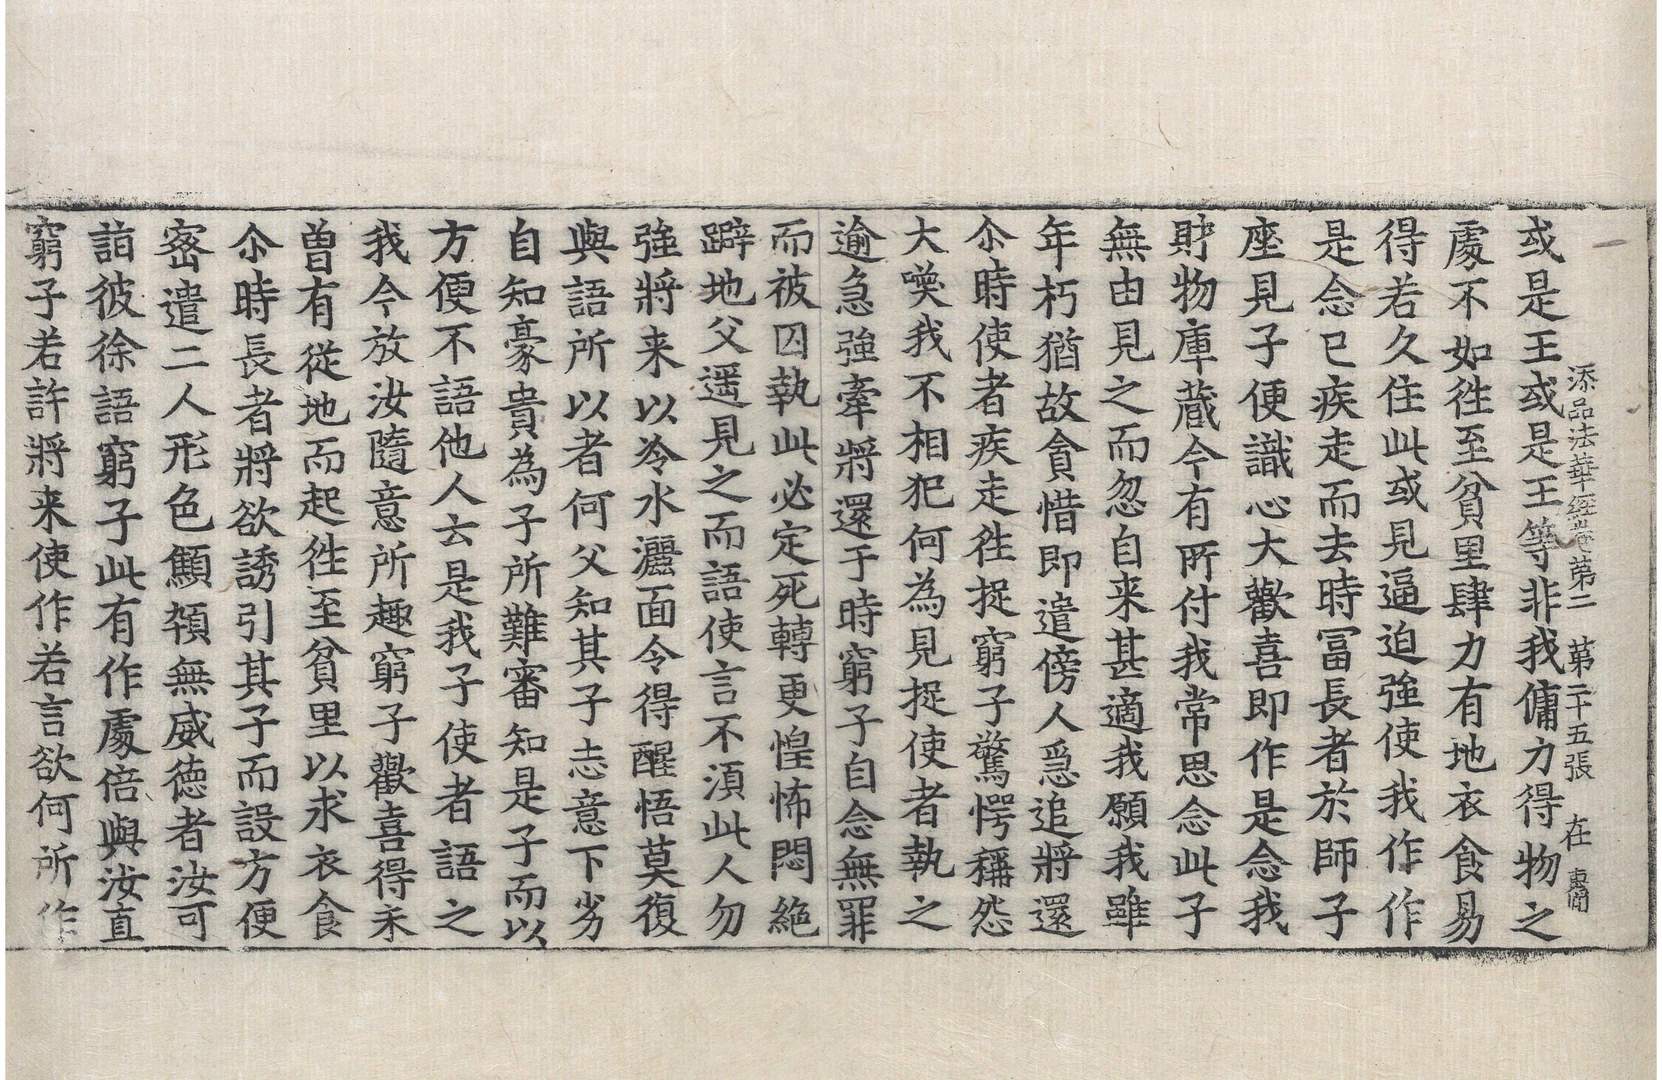 添品法華經卷第二　第二十五張　在
或是王或是王等非我傭力得物之
處不如徃至貧里肆力有地衣食易
得若久住此或見逼迫強使我作作
是念已疾走而去時冨長者於師子
座見子便識心大歡喜即作是念我
財物庫蔵今有所付我常思念此子
無由見之而忽自来甚適我願我雖
年朽猶故貪惜即遣傍人急追將還
尒時使者疾走徃捉窮子驚愕稱怨
大喚我不相犯何為見捉使者執之
逾急強牽將還于時窮子自念無罪
而被囚執此必定死轉更惶怖悶絕
躃地父遥見之而語使言不湏此人勿
強將来以冷水灑面令得醒悟莫復
與語所以者何父知其子志意下劣
自知豪貴為子所難審知是子而以
方便不語他人云是我子使者語之
我今放汝隨意所趣窮子歡喜得未
曽有從地而起徃至貧里以求衣食
尒時長者將欲誘引其子而設方便
宻遣二人形色顦頿無威徳者汝可
詣彼徐語窮子此有作處倍與汝直
窮子若許將来使作若言欲何所作